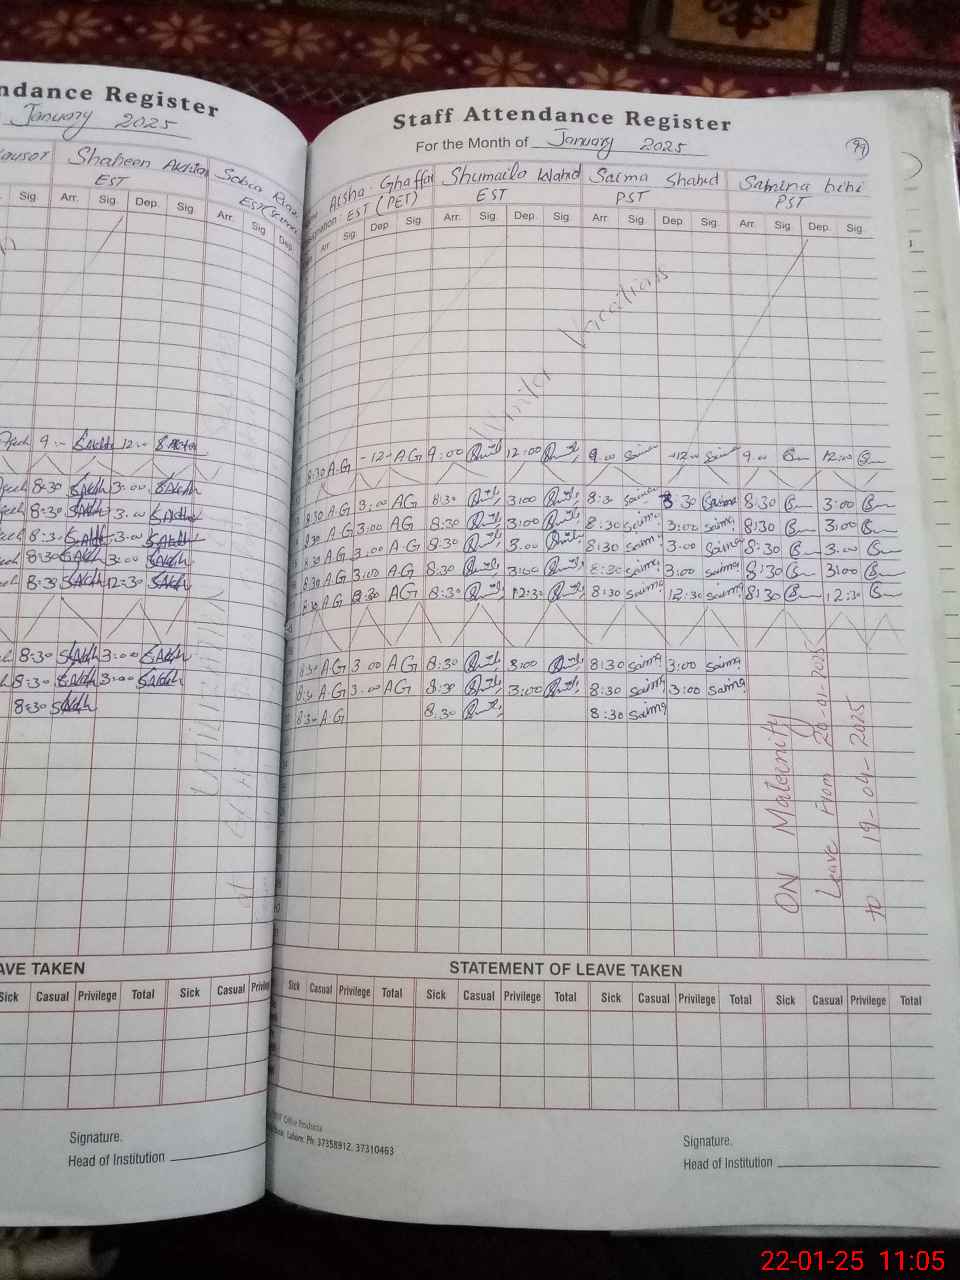 ndance Register
January 2025
Shaheen Akhtar
EST
Sig. Arr. Sig. Dep. Sig. Arr. Sig. Dep.
9:00 12:00
8:30 3:00
8:30 3:00
8:30 3:00
8:30 3:00
8:30 12:30
8:30 3:00
8:30 3:00
8:30
AVE TAKEN
Sick Casual Privilege Total Sick Casual
Signature.
Head of Institution
Staff Attendance Register
For the Month of January 2025
Aisha Ghaffar Shumaila Wahid Saima Shahid Samina bibi
EST (PET) EST PST PST
Arr. Sig. Dep. Sig. Arr. Sig. Dep. Sig. Arr. Sig. Dep. Sig. Arr. Sig. Dep. Sig.
Winter Vacations
8:30 A.G -12- AG 9:00 12:00 9:00 Saima 12:00 Saima 9:00 12:00
8:30 A.G 3:00 AG 8:30 3:00 8:30 Saima 8:30 Saima 8:30 3:00
8:30 A.G 3:00 AG 8:30 3:00 8:30 Saima 3:00 Saima 8:30 3:00
8:30 A.G 3:00 A.G 8:30 3:00 8:30 Saima 3:00 Saima 8:30 3:00
8:30 A.G 3:00 A.G 8:30 3:00 8:30 Saima 3:00 Saima 8:30 3:00
8:30 A.G AG 8:30 12:30 8:30 Saima 12:30 Saima 8:30 12:30
8:30 AG 3:00 AG 8:30 3:00 8:30 Saima 3:00 Saima
8:30 A.G 3:00 AG 8:30 3:00 8:30 Saima 3:00 Saima
8:30 A.G 8:30 8:30 Saima
ON Maternity
Leave From 20-01-2025
to 19-04-2025
STATEMENT OF LEAVE TAKEN
Sick Casual Privilege Total Sick Casual Privilege Total Sick Casual Privilege Total Sick Casual Privilege Total
Office Products
Lahore: Ph: 37358912, 37310463
Signature.
Head of Institution
22-01-25 11:05